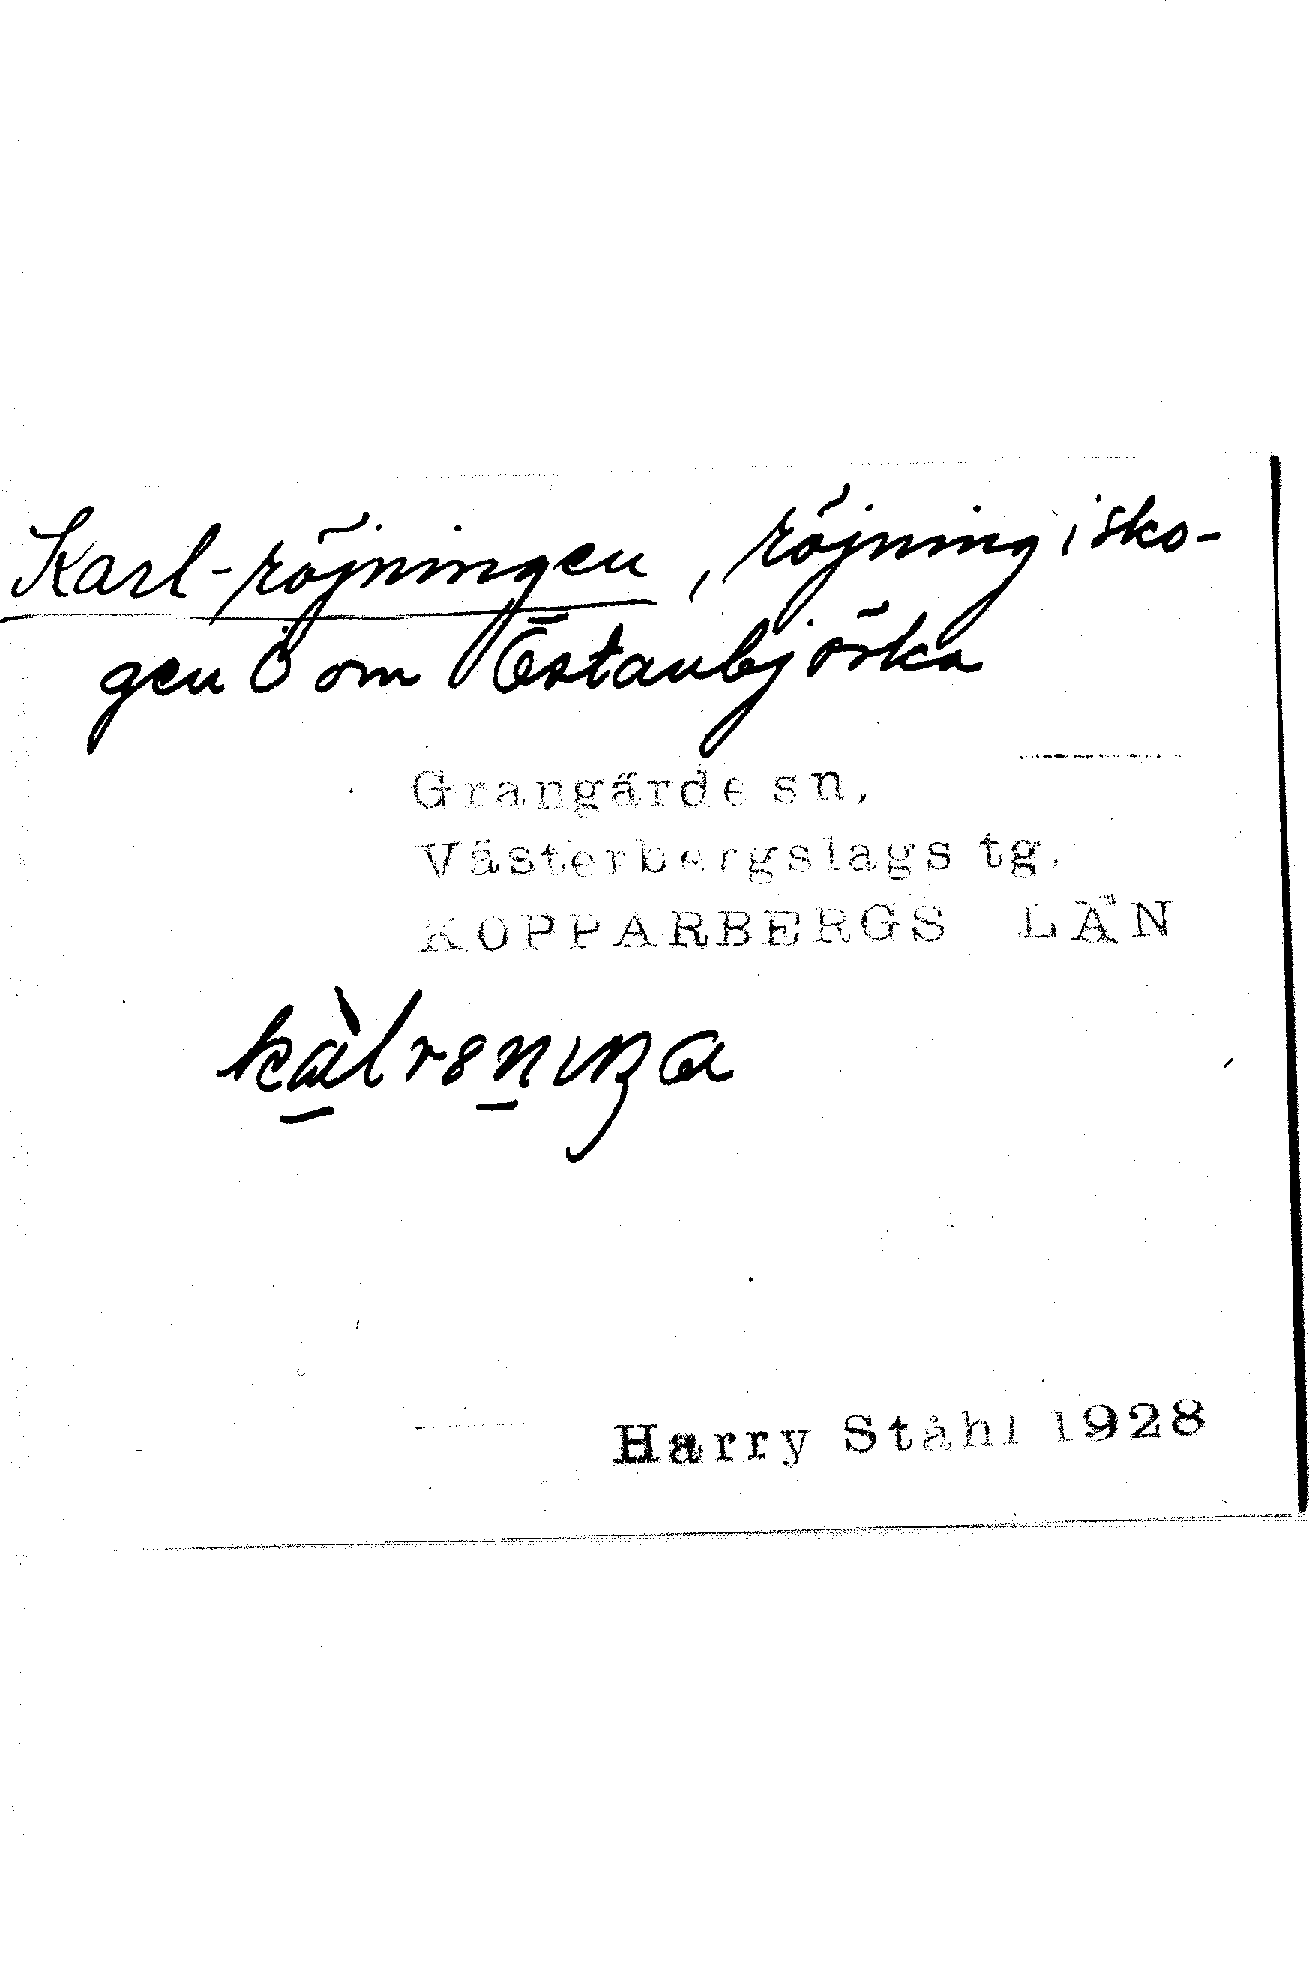 Karl-röjningen, röjning i sko-
gen Ö om Östanbjörka
Grangärde sn.
Västerbergslags tg.
KOPPARBERGS LÄN
Harry Ståhl 1928